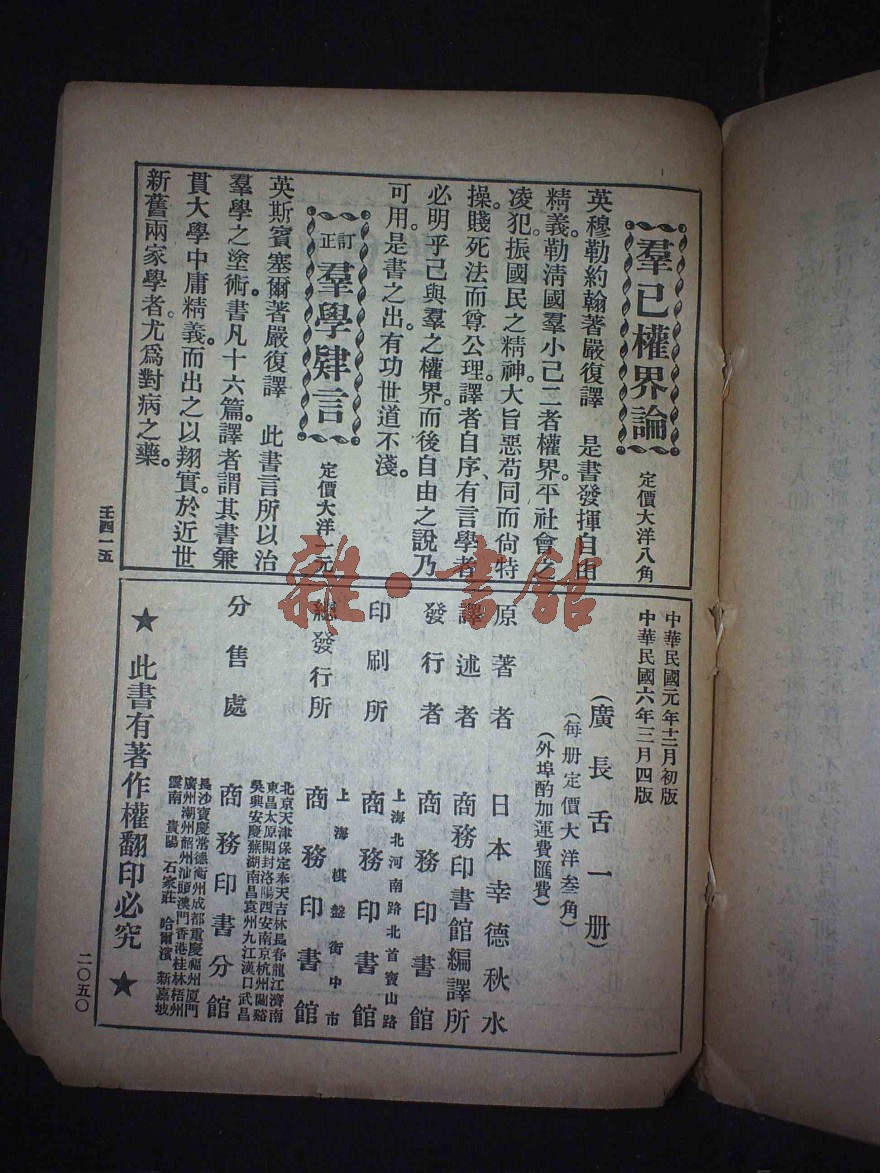 羣己權界論 定價大洋八角
英穆勒約翰著嚴復譯 是書發揮自由
精義。勒淸國羣小己二者權界。平社會之
凌犯。振國民之精神。大旨惡苟同而尙特
操。賤死法而尊公理。譯者自序、有言學者
必明乎己與羣之權界。而後自由之說乃
可用。是書之出。有功世道不淺。
訂正 羣學肄言 定價大洋一元
英斯賓塞爾著嚴復譯 此書言所以治
羣學之塗術。書凡十六篇。譯者謂其書兼
貫大學中庸精義。而出之以翔實。於近世
新舊兩家學者。尤爲對病之藥。
壬四一五
中華民國元年十二月初版
中華民國六年三月四版
(廣長舌一册)
(每册定價大洋叁角)
(外埠酌加運費匯費)
原著者 日本幸德秋水
譯述者 商務印書館編譯所
發行者 商務印書館
上海北河南路北首寶山路
印刷所 商務印書館
上海棋盤街中市
總發行所 商務印書館
北京天津保定奉天吉林長春龍江濟南
東昌太原開封洛陽西安南京杭州蘭谿
吳興安慶蕪湖南昌袁州九江漢口武昌
分售處 商務印書分館
長沙寶慶常德衡州成都重慶福州廈門
廣州潮州韶州汕頭澳門香港桂林梧州
雲南 貴陽 石家莊 哈爾濱 新嘉坡
★ 此書有著作權翻印必究 ★
二〇五〇
雜·書館